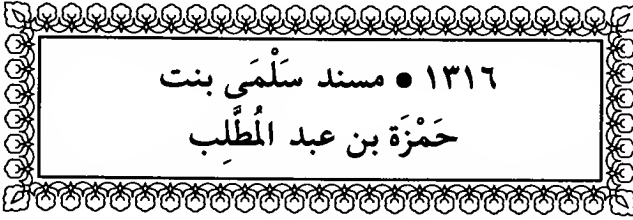 ١٣١٦ ● مسند سَلْمَى بنت
حَمْزَة بن عبد المُطَّلِب